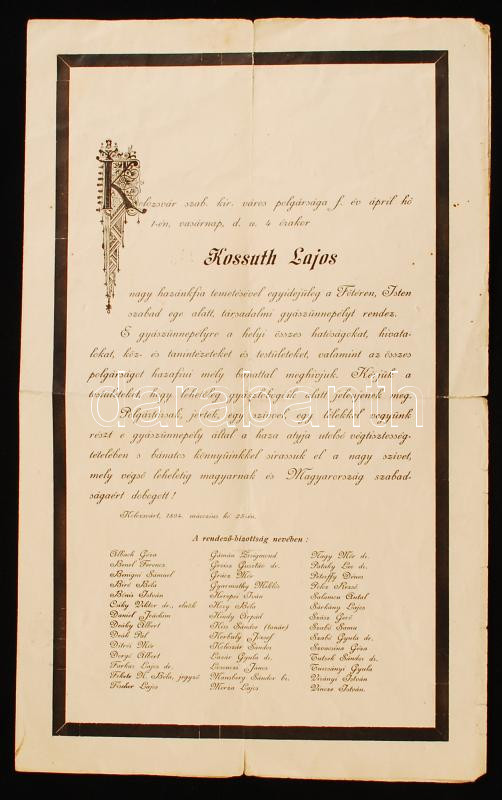 Kolozsvár szab. kir. város polgársága f. év ápril hó
1-én, vasárnap, d. u. 4 órakor
Kossuth Lajos
nagy hazánkfia temetésével egyidejüleg a Főtéren, Isten
szabad ege alatt, társadalmi gyászünnepélyt rendez.
E gyászünnepélyre a helyi összes hatóságokat, hivata-
lokat, köz- és tanintézeteket és testületeket, valamint az összes
polgárságot hazafiui mély bánattal meghivjuk. Kérjük a
testületeket, hogy lehetőleg gyászlobogóik alatt jelenjenek meg.
Polgártársak, jertek, egy szivvel, egy lélekkel vegyünk
részt e gyászünnepély által a haza atyja utolsó végtisztesség-
tételében s bánatos könnyünkkel sirassuk el a nagy szivet,
mely végső leheletig magyarnak és Magyarország szabad-
ságaért dobogott!
Kolozsvárt, 1894. márczius hó 25-én.
A rendező-bizottság nevében:
Albach Géza
Benel Ferencz
Benigni Sámuel
Biró Béla
Bónis István
Csáky Viktor dr., elnök
Dániel Joáchim
Deáky Albert
Deák Pál
Ditrói Mór
Dorgó Albert
Farkas Lajos dr.
Fekete N. Béla, jegyző
Fischer Lajos
Gámán Zsigmond
Groisz Gusztáv dr.
Grücz Mór
Gyarmathy Miklós
Herepei Iván
Hory Béla
Hindy Árpád
Kiss Sándor (tanár)
Korbuly József
Kolozsár Sándor
Lázár Gyula dr.
Lőrinczi János
Mannsberg Sándor br.
Merza Lajos
Nagy Mór dr.
Pataky Leo dr.
Pálffy Dénes
Polcz Rezső
Salamon Antal
Sárkány Lajos
Szász Gerő
Szabó Samu
Szabó Gyula dr.
Szvacsina Géza
Tutsek Sándor dr.
Turcsányi Gyula
Virányi István
Vincze István.
darabanth